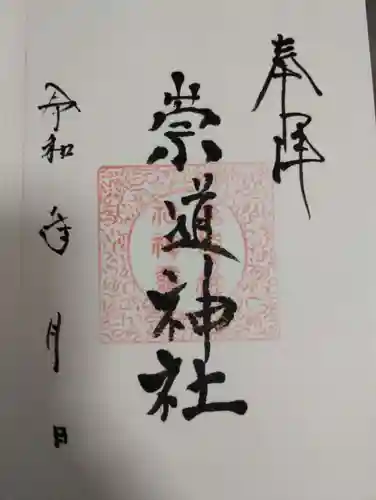 奉拝
崇道神社
令和 年 月 日